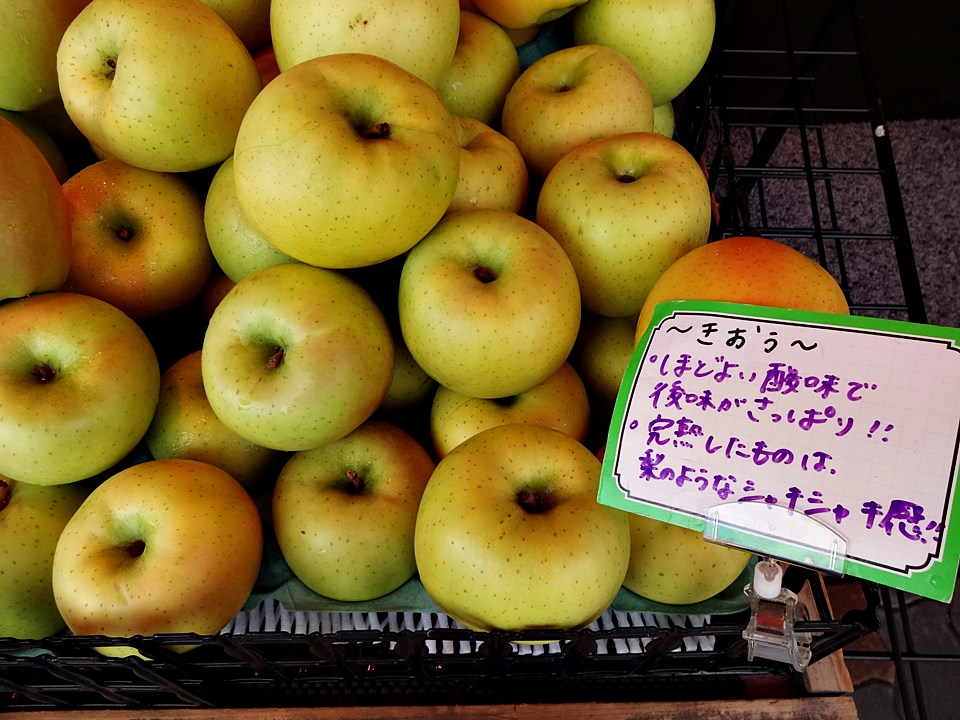 ～きおう～
・ほどよい酸味で
後味がさっぱり!!
・完熟したものは、
梨のようなシャキシャキ感!!